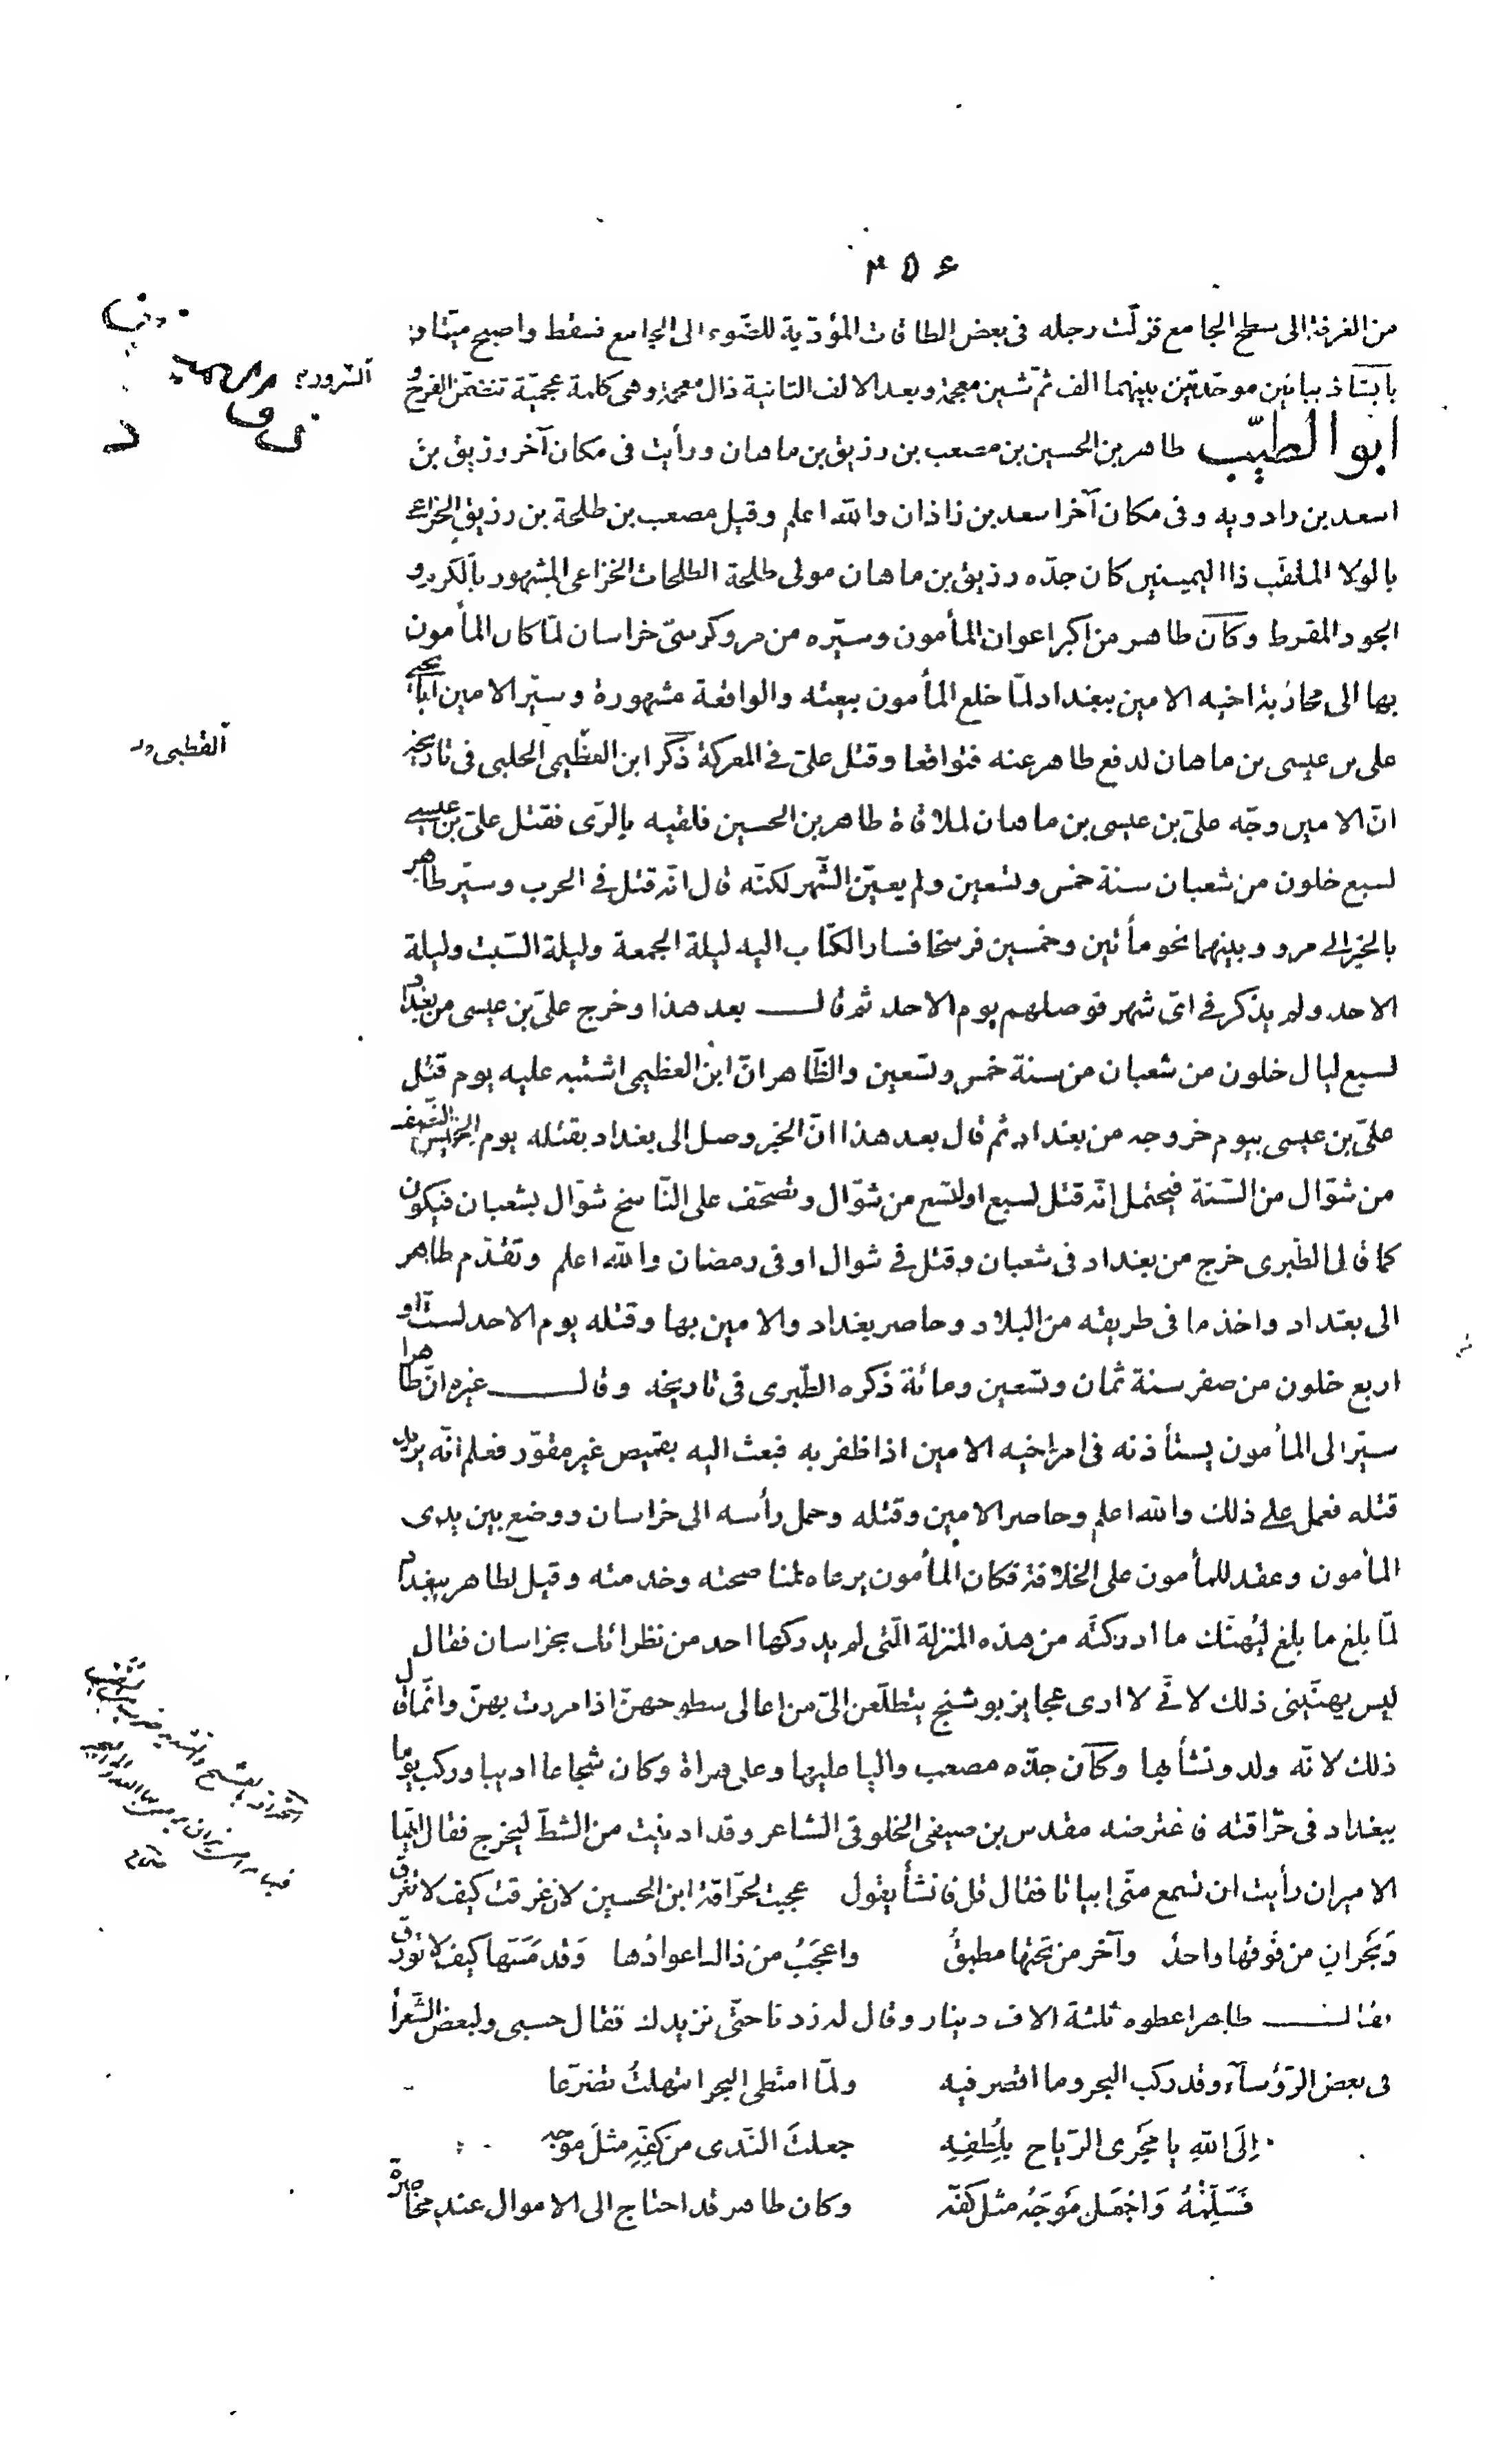 ٣٥٤
من الغرفة الى سطح الجامع فزلّت رجله فى بعض الطاقات المؤدّية للضّوء الى الجامع فسقط واصبح ميّتا و
بابشاذ ببائين موحدتين بينهما الف ثمّ شين معجمة وبعد الالف الثانية ذال معجمة وهى كلمة عجميّة تتضمّن الفرح و
السّرور
ابو الطيّب طاهر بن الحسين بن مصعب بن رزيق بن ماهان ورأيت فى مكان آخر رزيق بن
اسعد بن رادويه وفى مكان آخر اسعد بن زاذان والله اعلم وقيل مصعب بن طلحة بن رزيق الخزاعى
بالولا الملقّب ذا اليمينين كان جدّه رزيق بن ماهان مولى طلحة الطلحات الخزاعى المشهور بالكرم و
الجود المفرط وكان طاهر من اكبر اعوان المأمون وسيّره من مرو كرسىّ خراسان لمّا كان المأمون
بها الى محاربة اخيه الامين ببغداد لمّا خلع المأمون بيعته والواقعة مشهورة وسيّر الامين ابا يحيى
على بن عيسى بن ماهان لدفع طاهر عنه فتواقعا وقتل علىّ فى المعركة ذكر ابن العظيمى الحلبى فى تاريخه
القطبى
انّ الامين وجّه علىّ بن عيسى بن ماهان لملاقاة طاهر بن الحسين فلقيه بالرّى فقتل علىّ بن عيسى
لسبع خلون من شعبان سنة خمس وتسعين ولم يعيّن الشّهر لكنّه قال انّه قتل فى الحرب وسيّر طاهر
بالخبر الى مرو وبينهما نحو مأتين وخمسين فرسخا فسار الكتاب اليه ليلة الجمعة وليلة السّبت وليلة
الاحد ولم يذكر فى اىّ شهر فوصلهم يوم الاحد ثم قال بعد هذا وخرج علىّ بن عيسى من بغداد
لسبع ليال خلون من شعبان من سنة خمس وتسعين والظّاهر انّ ابن العظيمى اشتبه عليه يوم قتل
علىّ بن عيسى بيوم خروجه من بغداد ثم قال بعد هذا انّ الخبر وصل الى بغداد بقتله يوم الخميس النّصف
من شوّال من السّنة فيحتمل انّه قتل لسبع او لتسع من شوّال وتصحّف على النّاسخ شوّال بشعبان فيكون
كما قال الطّبرى خرج من بغداد فى شعبان وقتل فى شوال او فى رمضان والله اعلم وتقدّم طاهر
الى بغداد واخذ ما فى طريقه من البلاد وحاصر بغداد والامين بها وقتله يوم الاحد لستّ او
اربع خلون من صفر سنة ثمان وتسعين ومائة ذكره الطّبرى فى تاريخه وقال غيره انّ طاهرا
سيّر الى المأمون يستأذنه فى امر اخيه الامين اذا ظفر به فبعث اليه بقميص غير مقوّر فعلم انّه يريد
قتله فعمل على ذلك والله اعلم وحاصر الامين وقتله وحمل رأسه الى خراسان ووضع بين يدى
المأمون وعقد للمأمون على الخلافة فكان المأمون يرعاه لمناصحته وخدمته وقيل لطاهر ببغداد
لمّا بلغ ما بلغ ليُهنّك ما ادركته من هذه المنزلة الّتى لم يدركها احد من نظرائك بخراسان فقال
ليس يهنّينى ذلك لانّى لا ارى عجايز بوشنج يتطلّعن الىّ من اعالى سطوحهنّ اذا مررت بهنّ وانّما قال
ذلك لانّه ولد ونشأ بها وكان جدّه مصعب واليا عليها وعلى هراة وكان شجاعا اديبا وركب يوما
ببغداد فى حرّاقته فاعترضه مقدس بن صيفى الخلوقى الشاعر وقد ادنيت من الشطّ ليخرج فقال ايّها
الامير ان رأيت ان تسمع منّى ابياتا فقال قل فانشأ يقول عجبت لحرّاقة ابن الحسين لا غرقت كيف لا تغرق
وَبَحران من فوقها واحدُ وآخر من تحتها مطبقُ واعجَبُ من ذاك اعوادُها وَقد مَسّها كيف لا تورق
فقال طاهر اعطوه ثلثة الاف دينار وقال له زدنا حتّى نزيدك فقال حسبى ولبعض الشّعرا
فى بعض الرّؤسآء وقد ركب البحر وما اقصر فيه ولمّا امتطى البحر ابتهلتُ تضرّعا
اِلَى اللهِ يا مجُرِى الرّياح بلُطفِهِ جعلتَ النّدى من كفّهِ مثلَ موجه
فَسَلِّمْهُ وَاجْعَل مَوجَهُ مثل كفّه وكان طاهر قد احتاج الى الاموال عند محاصرة